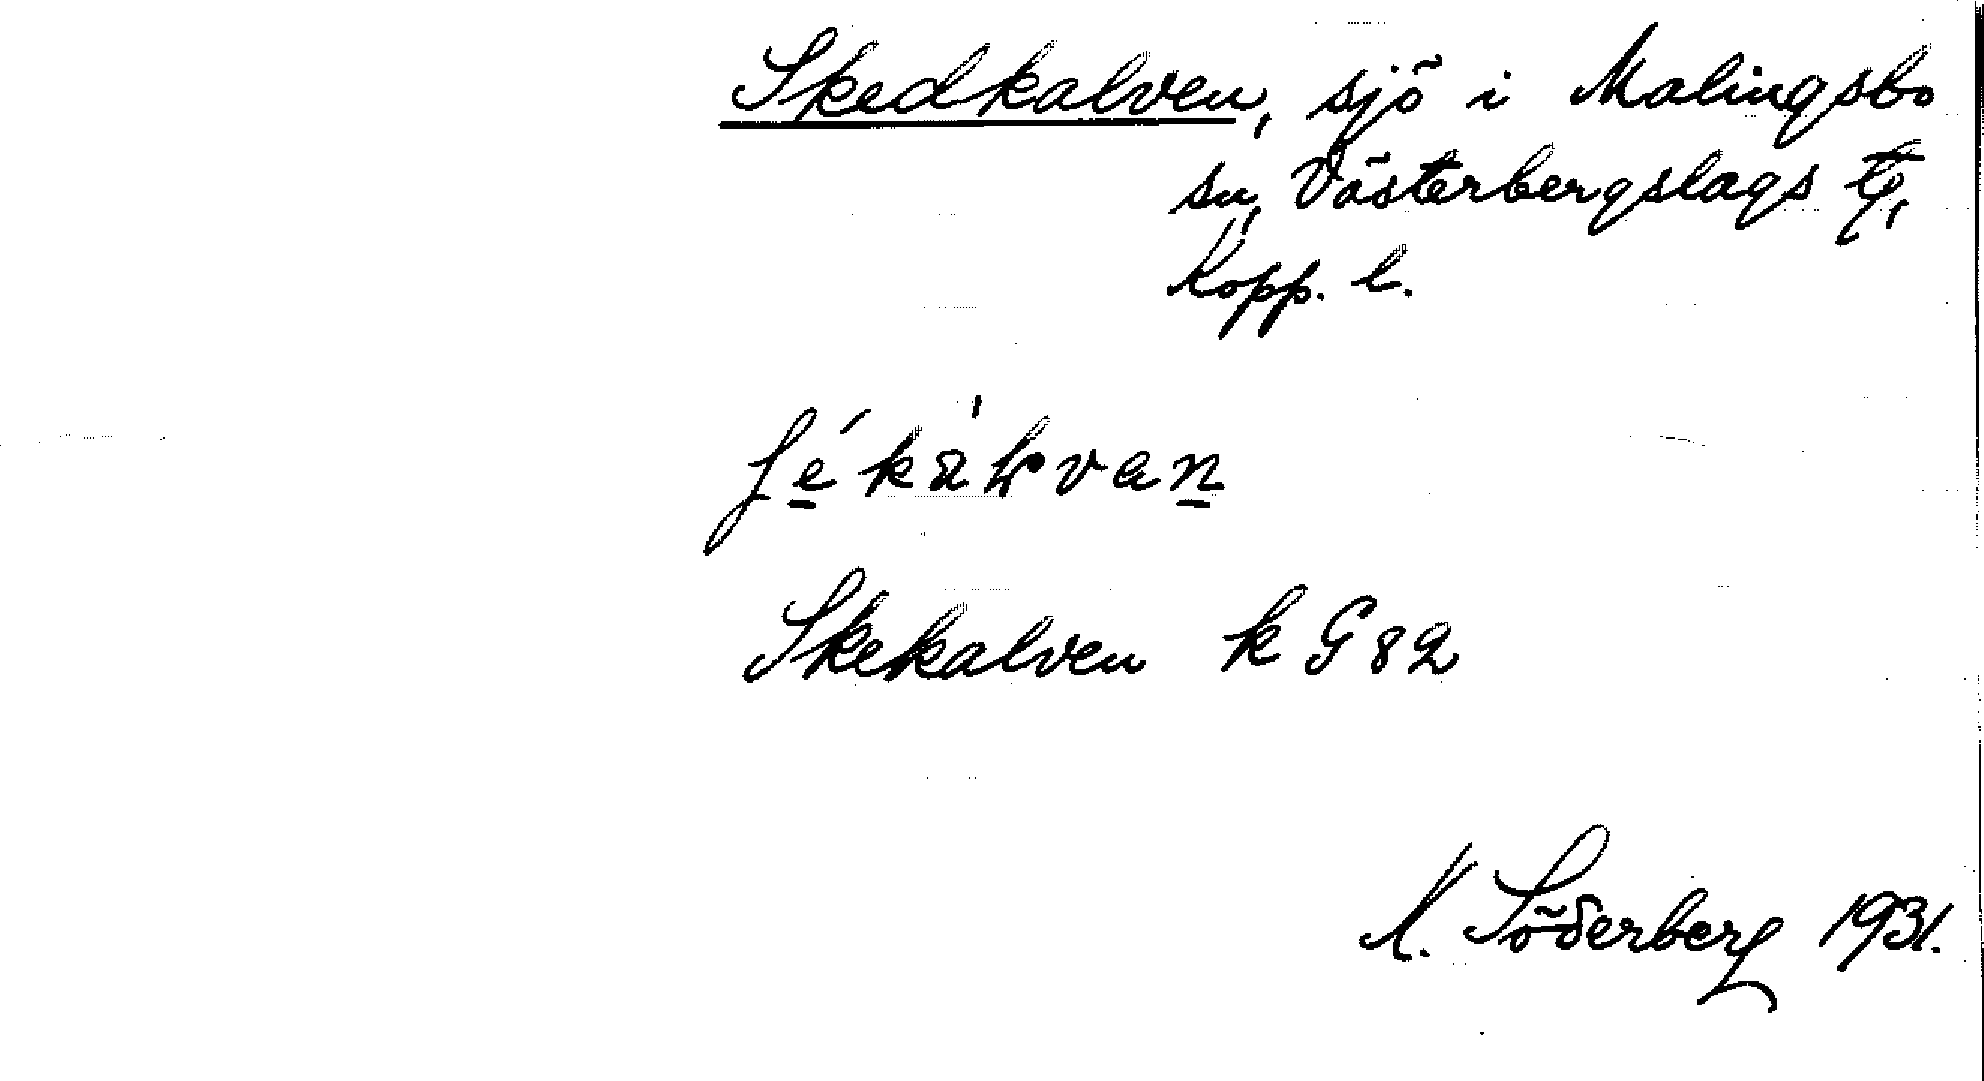 Skedkalven, sjö i Malingsbo
sn, Västerbergslags tg,
Kopp. l.
Skekalven k G82
K. Söderberg 1931.